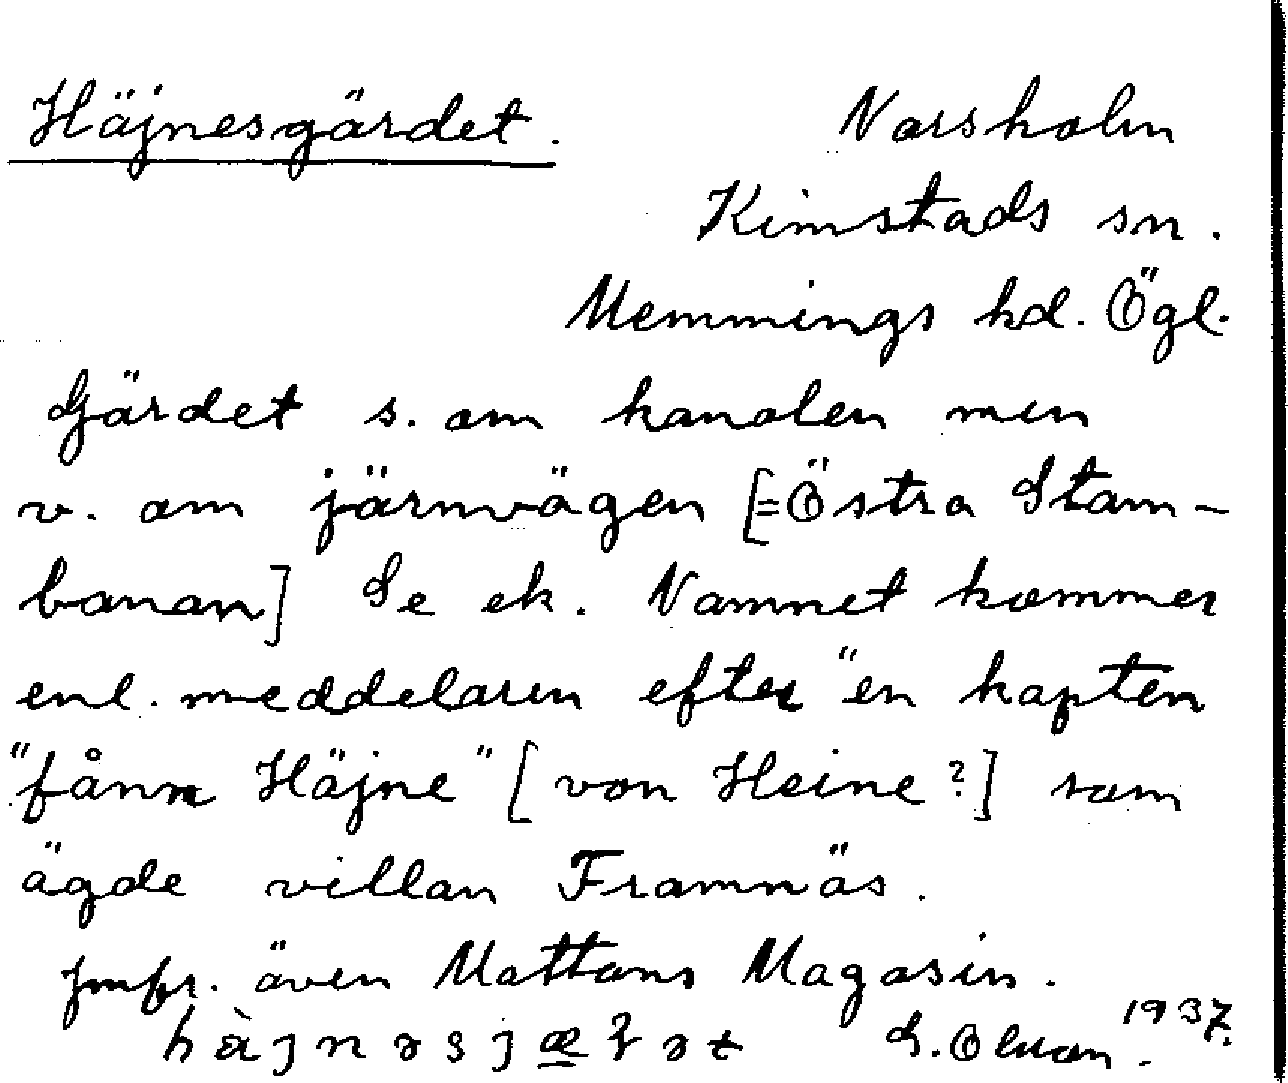 Häjnesgärdet. Norsholm
Kimstads sn.
Memmings hd. Ögl.
Gärdet s. om kanalen men
v. om järnvägen [=Östra Stam-
banan] Se ek. Namnet kommer
enl. meddelaren efter "en kapten
"fånn Häjne" [von Heine?] som
ägde villan Framnäs.
Jmfr. även Mattons Magasin.
hàjnəsjæ̲ɽət 1937.